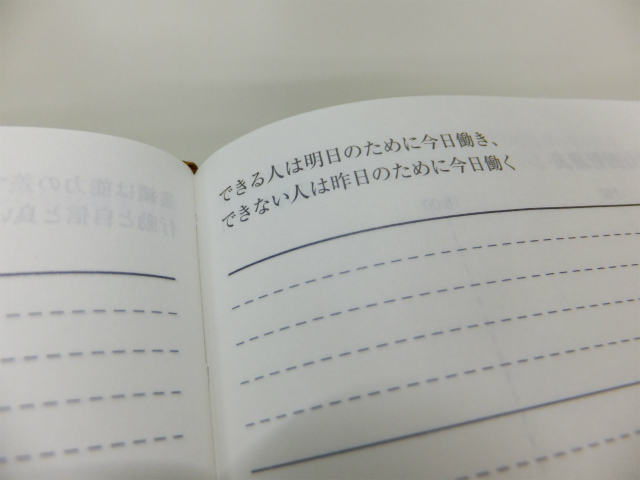 できる人は明日のために今日働き、
できない人は昨日のために今日働く